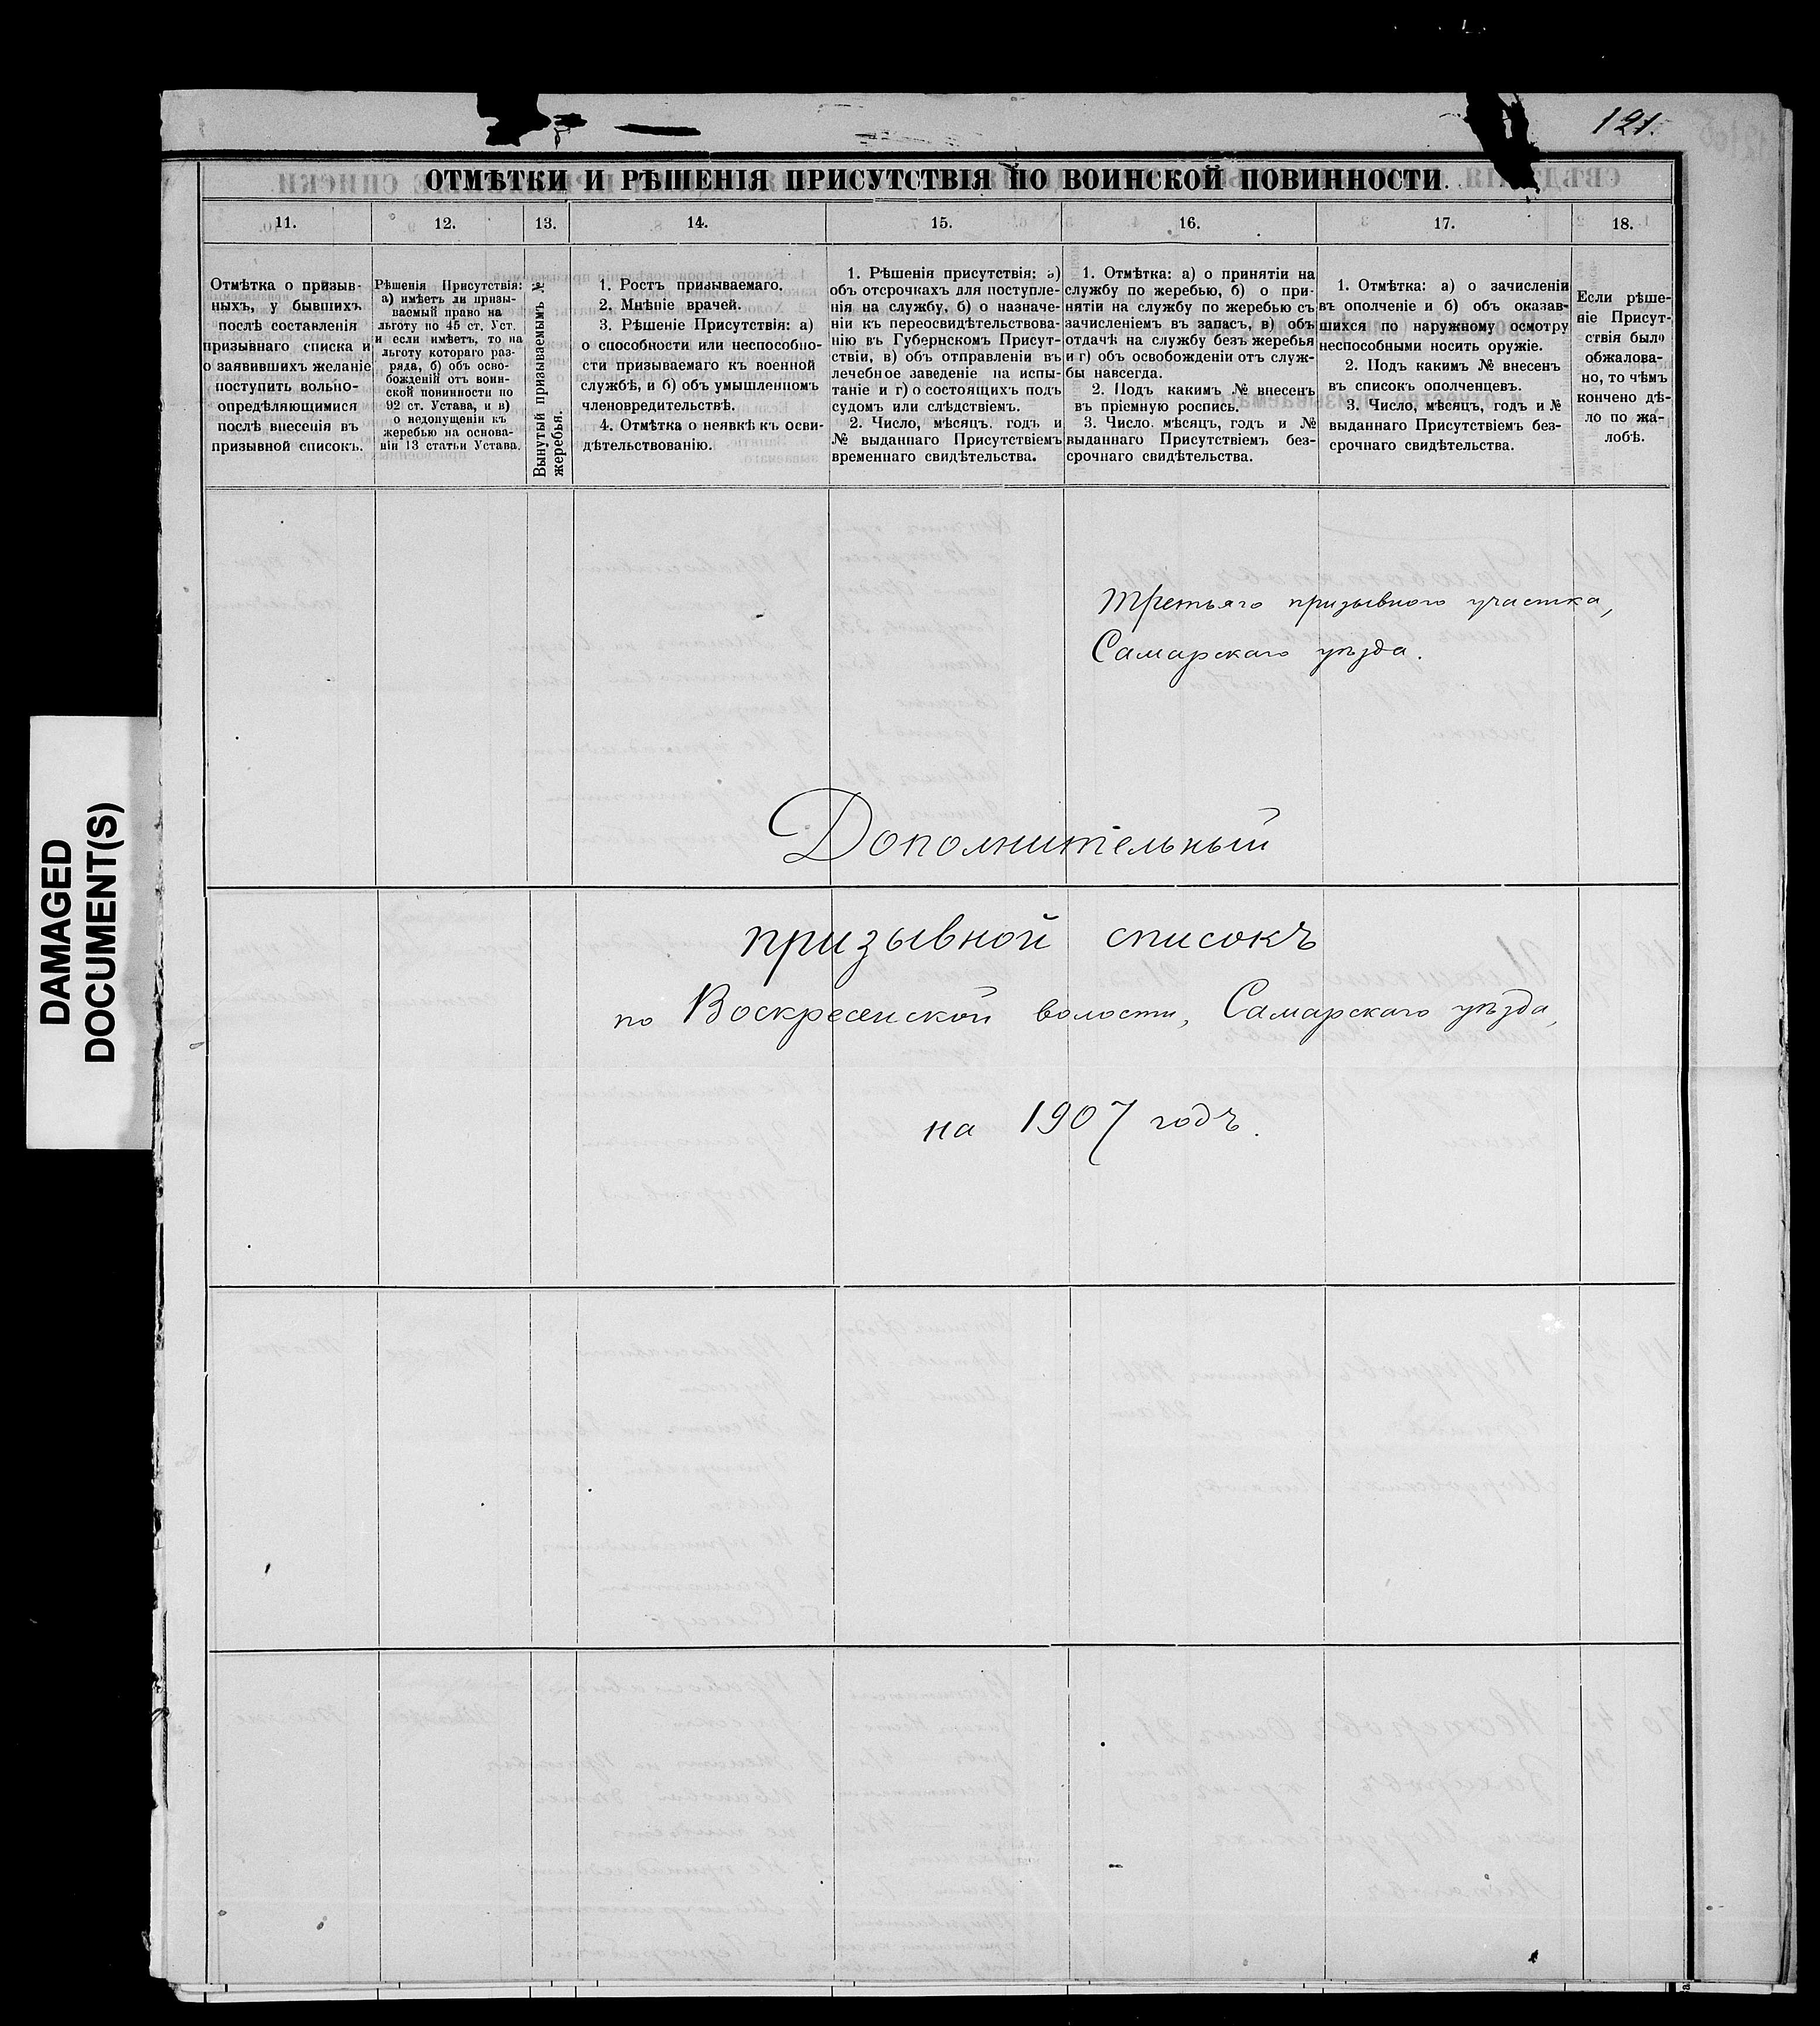 121.
ОТМѢТКИ И РѢШЕНІЯ ПРИСУТСТВІЯ ПО ВОИНСКОЙ ПОВИННОСТИ.
11.
12.
13.
14.
15.
16.
17.
18.
Отмѣтка о призыв-
ныхъ, у бывшихъ
послѣ составленія
призывнаго списка и
о заявившихъ желаніе
поступить вольно-
опредѣляющимися
послѣ внесенія въ
призывной списокъ.
Рѣшенія Присутствія:
а) имѣетъ ли призы-
ваемый право на
льготу по 45 ст. Уст.
и если имѣетъ, то на
льготу котораго раз-
ряда, б) объ осво-
божденій отъ воин-
ской повинности по
92 ст. Устава, и в)
о недопущеніи къ
жеребью на основа-
ніи 13 статьи Устава.
Вынутый призываемымъ №
жеребья.
1. Ростъ призываемаго.
2. Мнѣніе врачей.
3. Рѣшеніе Присутствія: а)
о способности или неспособно-
сти призываемаго къ военной
службѣ, и б) объ умышленномъ
членовредительствѣ.
4. Отмѣтка о неявкѣ къ осви-
дѣтельствованію.
1. Рѣшенія присутствія: а)
объ отсрочкахъ для поступле-
нія на службу, б) о назначе-
ніи къ переосвидѣтельствова-
нію въ Губернскомъ Присут-
ствіи, в) объ отправленіи въ
лечебное заведеніе на испы-
таніе и г) о состоящихъ подъ
судомъ или слѣдствіемъ.
2. Число, мѣсяцъ. годъ и
№ выданнаго Присутствіемъ
временнаго свидѣтельства.
1. Отмѣтка: а) о принятіи на
службу по жеребью, б) о при-
нятіи на службу по жеребью съ
зачисленіемъ въ запасъ, в) объ
отдачѣ на службу безъ жеребья
и г) объ освобожденіи отъ служ-
бы навсегда.
2. Подъ какимъ № внесенъ
въ пріемную роспись.
3. Число. мѣсяцъ, годъ и №
выданнаго Присутствіемъ без-
срочнаго свидѣтельства.
1. Отмѣтка: а) о зачисленіи
въ ополченіе и б) объ оказав-
шихся по наружному осмотру
неспособными носить оружіе.
2. Подъ какимъ № внесенъ
въ списокъ ополченцевъ.
3. Число, мѣсяцъ, годъ и №
выданнаго Присутствіемъ без-
срочнаго свидѣтельства.
Если рѣше-
ніе Присут-
ствія было
обжалова-
но, то чѣмъ
кончено дѣ-
ло по жа-
лобѣ.
Третьяго призывного участка,
Самарскаго уѣзда.
DAMAGED
DOCUMENT(S)
Дополнительный
призывной списокъ
по Воскресенской волости, Самарскаго уѣзда,
на 1907 годъ.